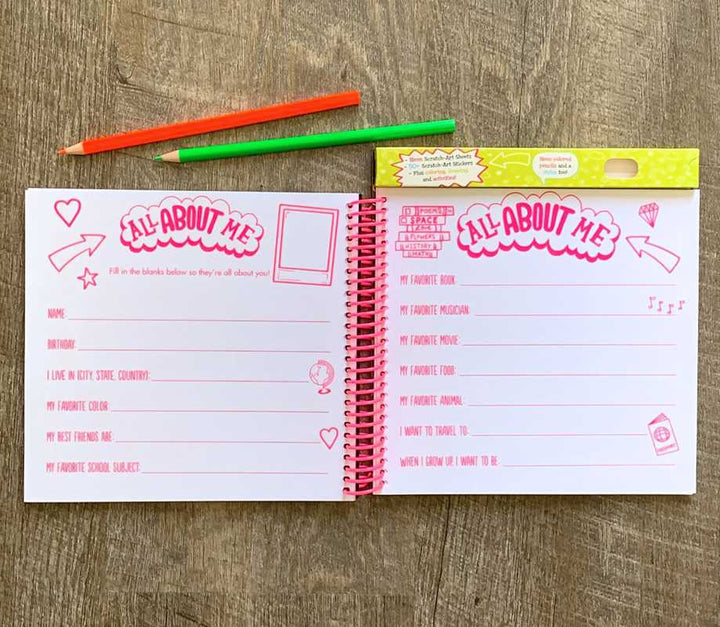 - Neon Scratch-Art Sheets
- 50+ Scratch-Art Stickers
- Plus coloring, drawing,
and activities!
Neon colored
pencils and a
stylus too!
ALL ABOUT ME
Fill in the blanks below so they're all about you!
NAME:
BIRTHDAY:
I LIVE IN (CITY, STATE, COUNTRY):
MY FAVORITE COLOR:
MY BEST FRIENDS ARE:
MY FAVORITE SCHOOL SUBJECT:
POEMS
SPACE
FLOWERS
HISTORY
MATHS
ALL ABOUT ME
MY FAVORITE BOOK:
MY FAVORITE MUSICIAN:
MY FAVORITE MOVIE:
MY FAVORITE FOOD:
MY FAVORITE ANIMAL:
I WANT TO TRAVEL TO:
WHEN I GROW UP, I WANT TO BE: